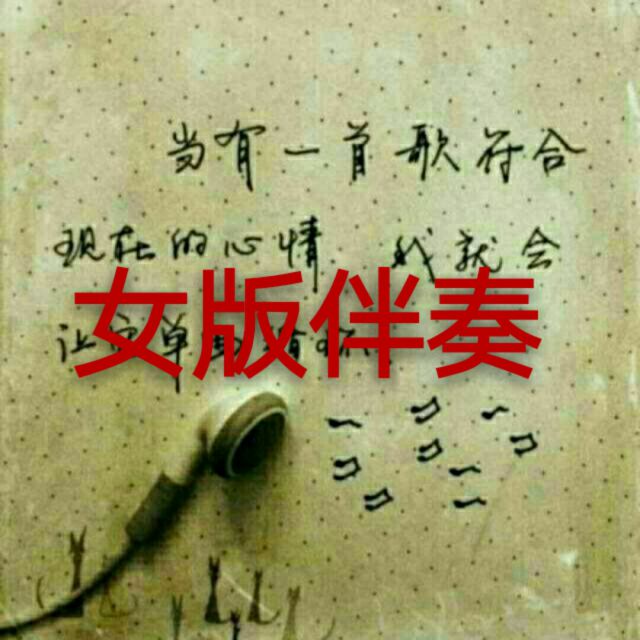 当有一首歌符合
现在的心情 我就会
让它单曲循环
女版伴奏